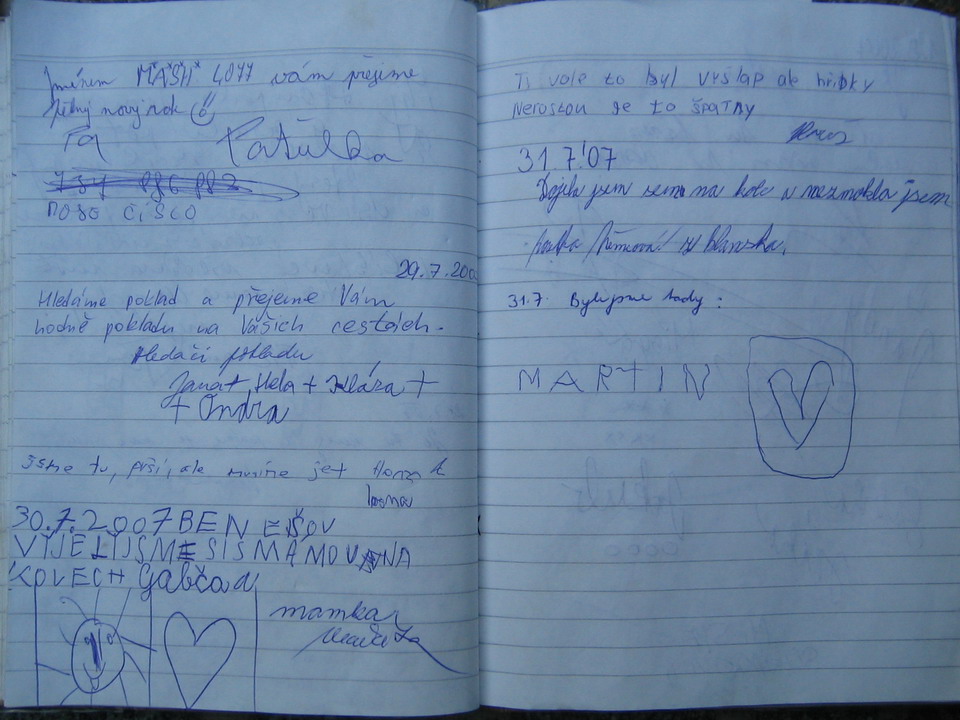 Jménem MAŠH 4077 vám přejeme
pěkný nový rok
Patulka
MOJE ČÍSLO
29.7.200
Hledáme poklad a přejeme Vám
hodně pokladů na Vašich cestách.
Hledači pokladu
Jana + Hela + Klára +
+ Ondra
Jsme tu, prší, ale musíme jet Honza
30.7.2007 BENEŠOV
VIJELIJSME SI SMÁMOU NA
KOLECH Gabča a
mamka
Ty vole to byl vyšlap ale hřibky
Nerostou je to špatny
31.7.'07
Dojela jsem sem na kole a nezmokla jsem
Blanska.
31.7. Byli jsme tady:
MARTIN